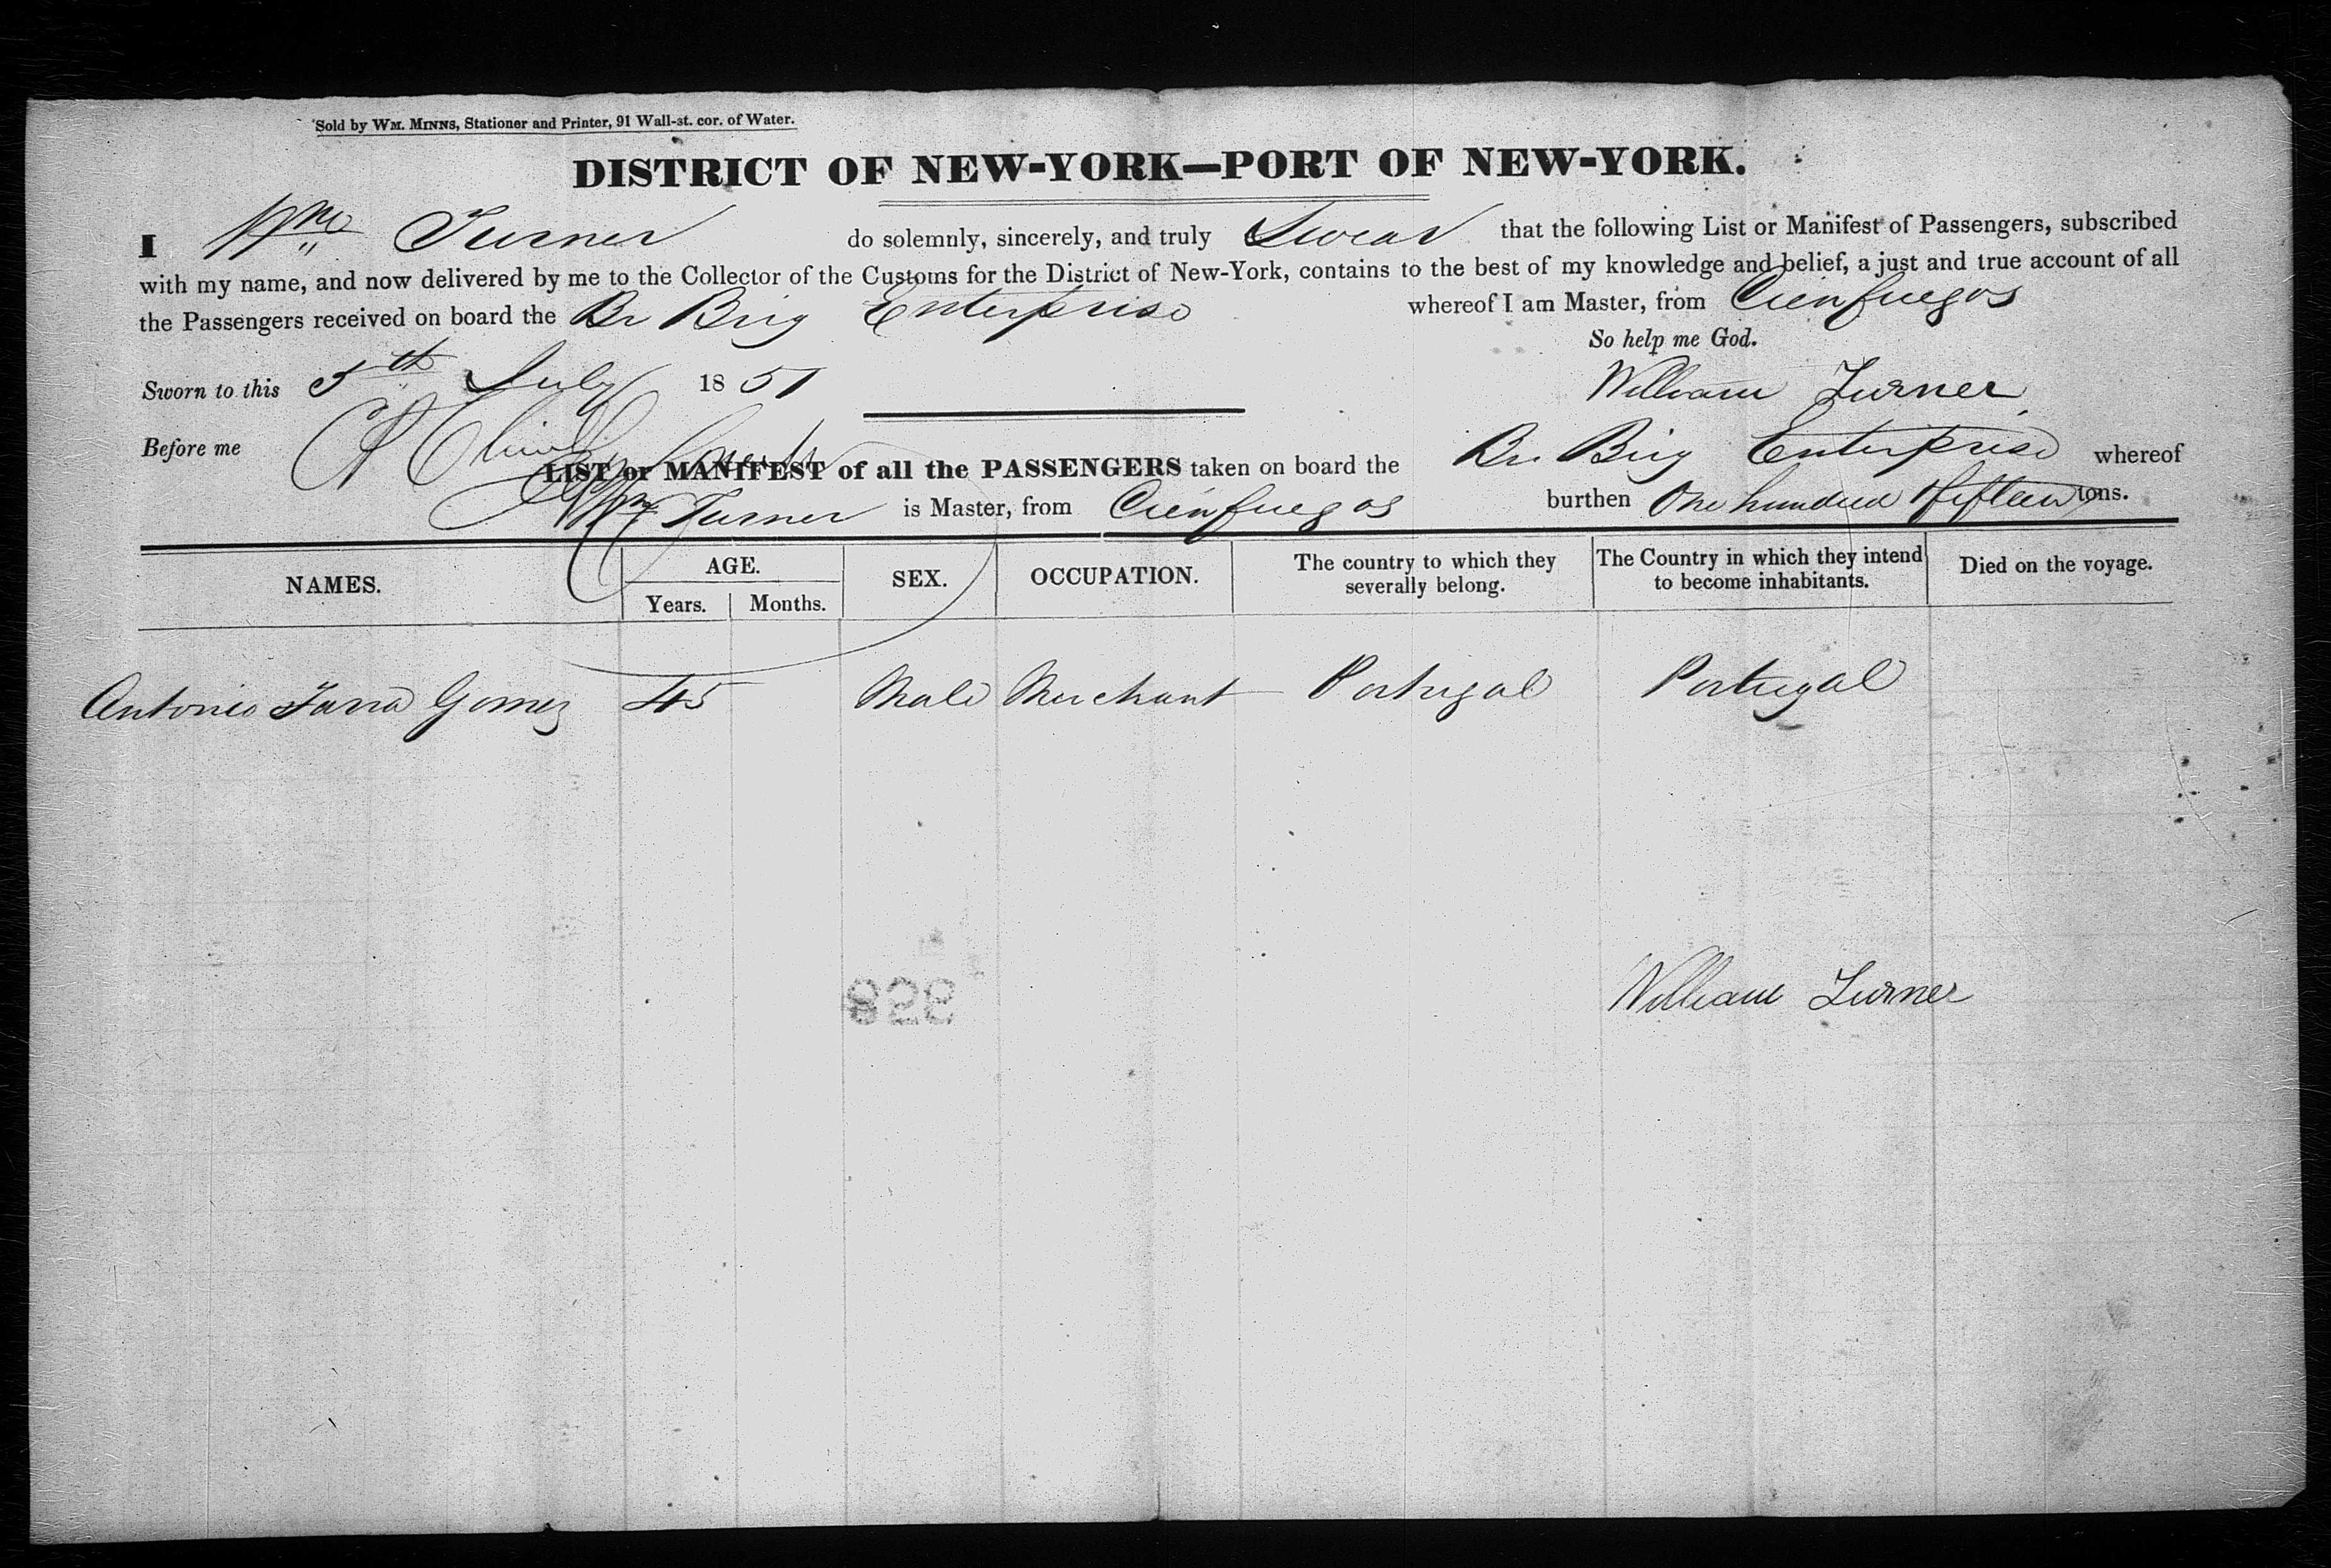 Sold by WM. MINNS, Stationer and Printer, 91 Wall-st. cor. of Water.
DISTRICT OF NEW-YORK—PORT OF NEW-YORK.
I Wm Turner do solemnly, sincerely, and truly Swear that the following List or Manifest of Passengers, subscribed
with my name, and now delivered by me to the Collector of the Customs for the District of New-York, contains to the best of my knowledge and belief, a just and true account of all
the Passengers received on board the Br Brig Enterprise whereof I am Master, from Cienfuegos
So help me God.
Sworn to this 5th July 1851 William Turner
Before me
LIST or MANIFEST of all the PASSENGERS taken on board the Br. Brig Enterprise whereof
Wm Turner is Master, from Cienfuegos burthen One hundred & fifteen tons.
NAMES. AGE. Years. Months. SEX. OCCUPATION. The country to which they severally belong. The Country in which they intend to become inhabitants. Died on the voyage.
Antonio Gomez 45 Male Merchant Portugal Portugal
828
William Turner